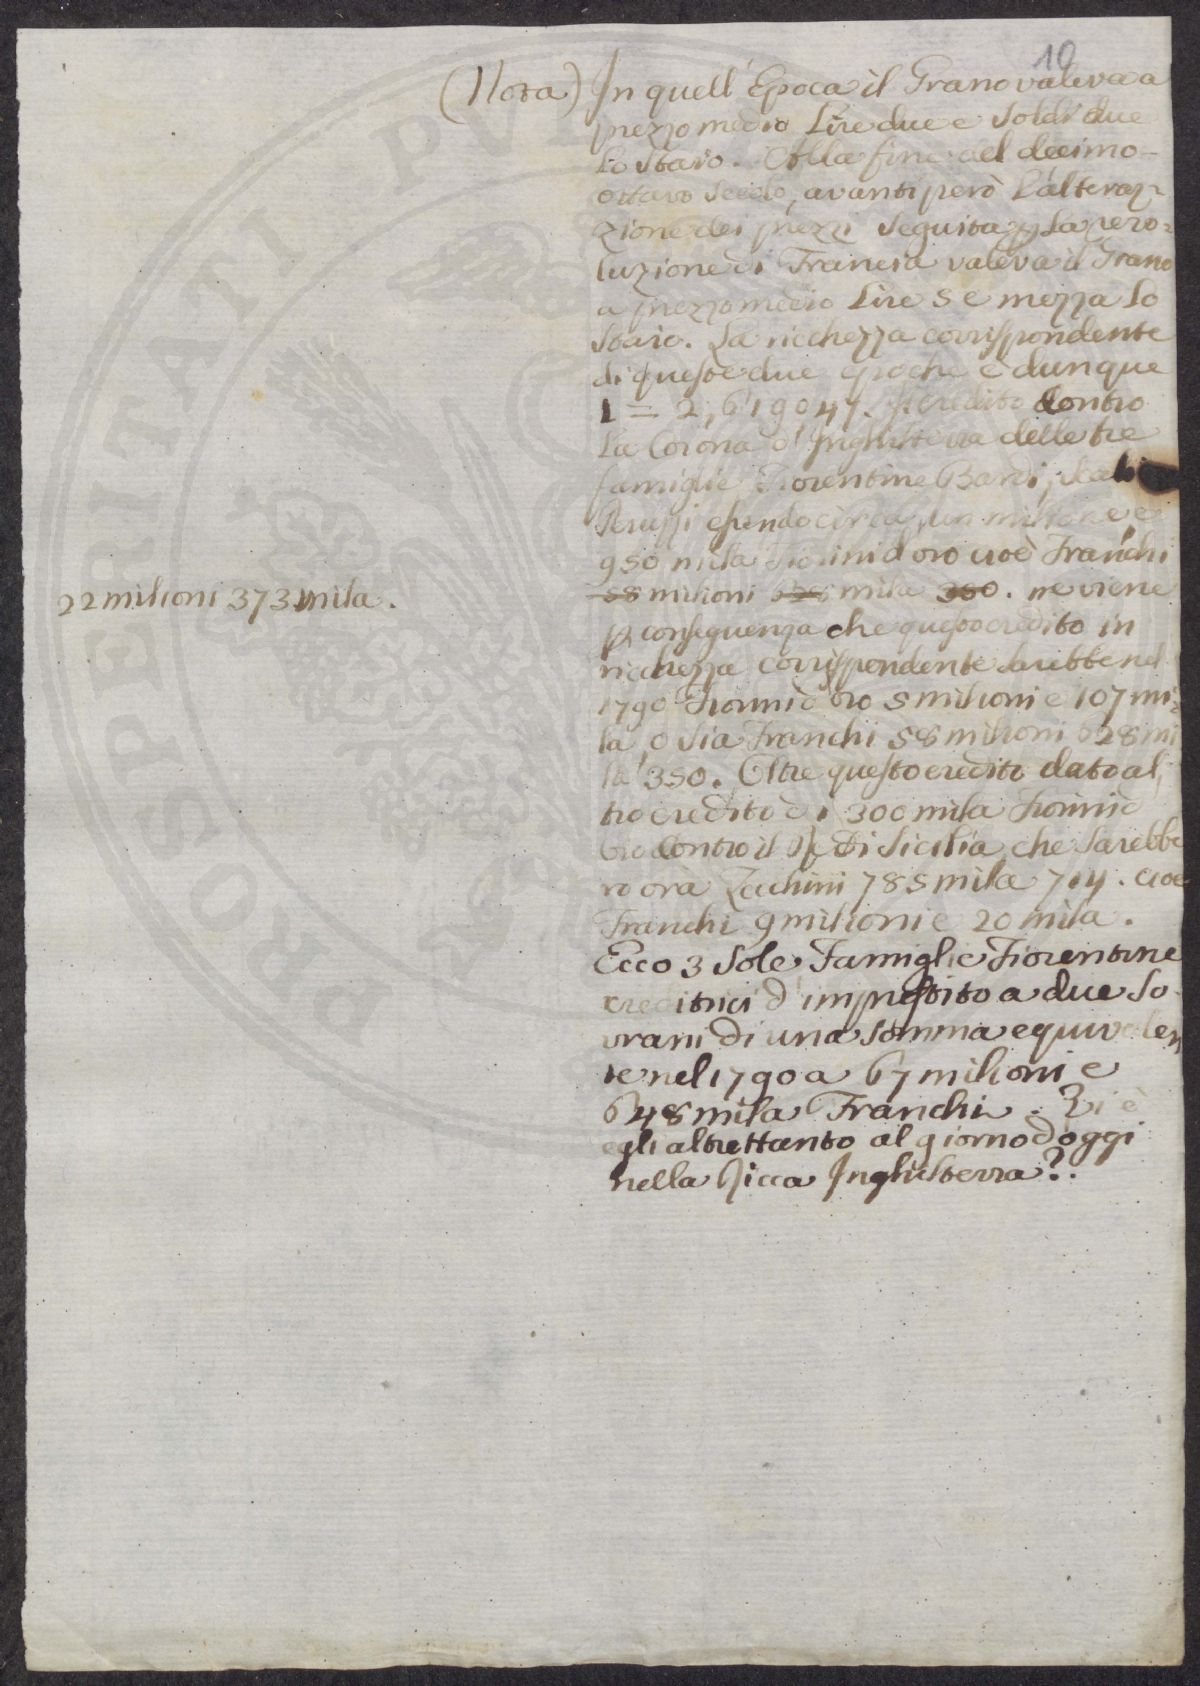 10
(Nota) In quell'Epoca il Grano valeva a
prezzo medio Lire due e Soldi due
lo Staio. Colla fine del decimo-
ottavo Secolo, avanti però l'alteraz-
zione dei prezzi seguita p la revo-
luzione di Francia valeva il Grano
a prezzo medio Lire 5 e mezza lo
Staio. La ricchezza corrispondente
di queste due epoche è dunque
1 = 2,619047. Il credito contro
la Corona d'Inghilterra delle tre
famiglie Fiorentine Bardi, Scali
Peruzzi essendo circa un milione e
950 mila Fiorini d'oro cioè Franchi
58 milioni 628 mila 350. ne viene
22 milioni 373 mila.
p conseguenza che questo credito in
ricchezza corrispondente sarebbe nel
1790 Fiorini d'oro 5 milioni e 107 mi-
la, o sia Franchi 58 milioni 628 mi
la 350. Oltre questo credito dato al,
tro credito di 300 mila Fiorini d
oro contro il Re di Sicilia, che sarebbe
ro ora Zecchini 785 mila 714. cioè
Franchi 9 milioni e 20 mila.
Ecco 3 sole Famiglie Fiorentine
creditrici d'imprestito a due So
vrani di una somma equivalen
te nel 1790 a 67 milioni e
648 mila Franchi. Vi è
egli altrettanto al giorno d'oggi
nella Ricca Inghilterra?.
PROSPERITATI